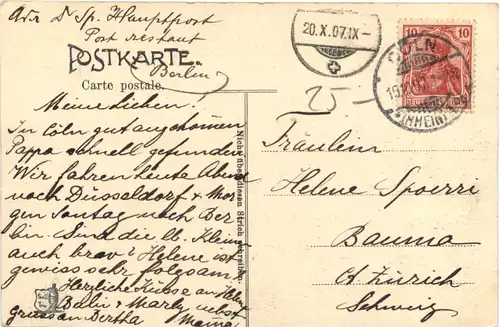 Adr Dr Sp. Hauptpost
Post restant
POSTKARTE.
(Berlin)
Carte postale.
Meine Lieben!
In Cöln gut angekommen
Pappa schnell gefunden
Wir fahren heute Abend
nach Düsseldorf & Mor-
gen Sontag nach Ber-
lin. Sind die lb. Kleinen
auch brav? Helene ist
gewiss sehr folgsam?
Herzliche Küsse an Helen
& Marly nebst
gruss an Bertha Mama
Nichts über diesen Strich schreiben.
20.X.07.IX-
25-
10
10
CÖLN
(RHEIN)
Fräulein
Helene Spoerri
Bauma
Ct Zürich
Schweiz